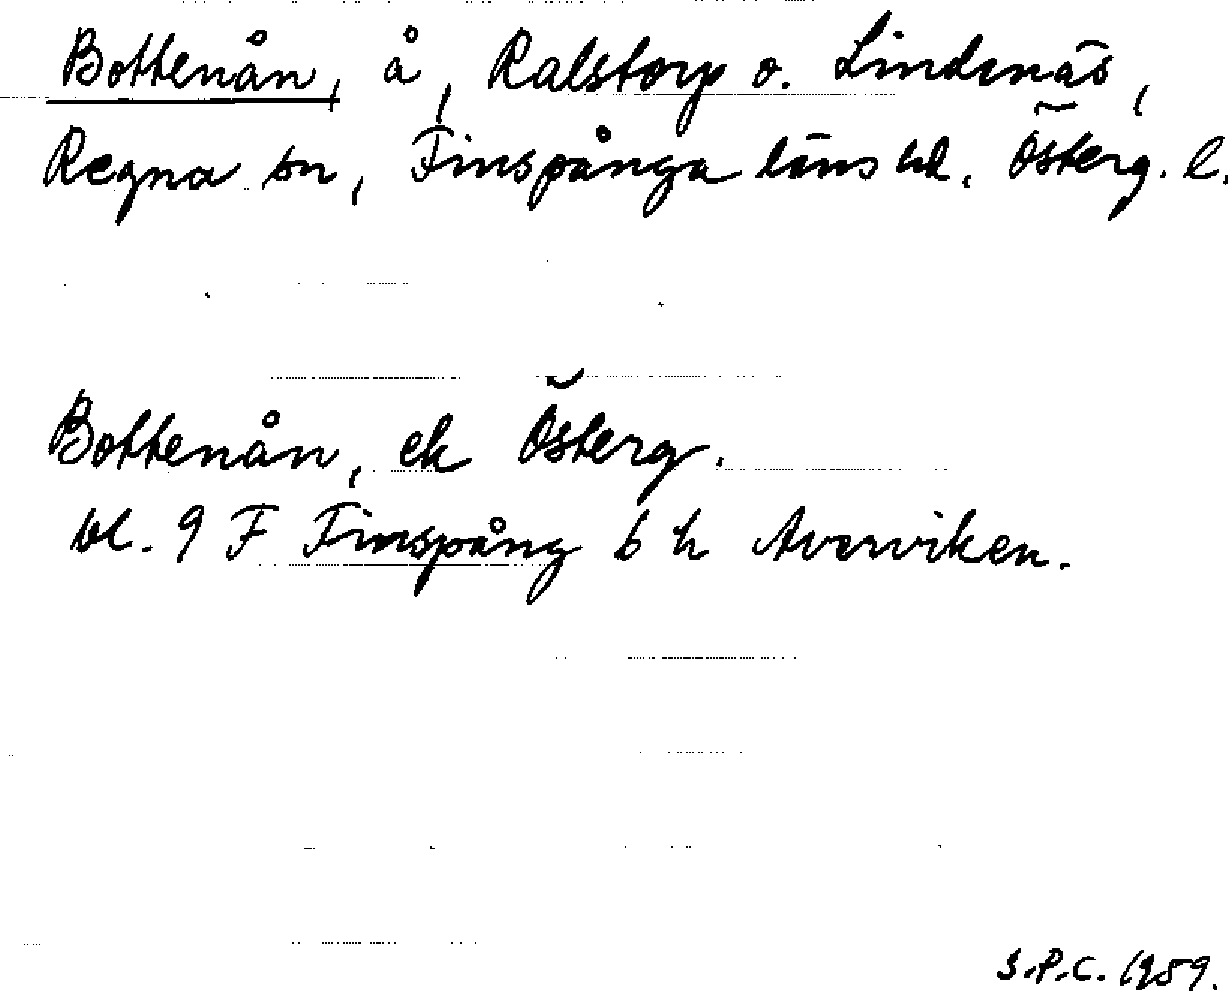 Bottenån, å, Ralstorp o. Lindenäs,
Regna sn, Finspånga läns hd. Österg. l.
Bottenån, ek Österg.
bl. 9 F Finspång b h Averviken.
S.P.C. 1959.